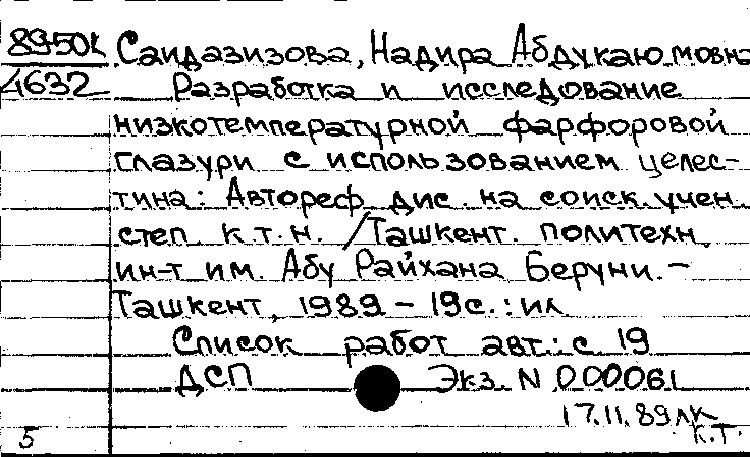 8950к Саидазизова, Надира Абдукаюмовна
4632 Разработка и исследование
низкотемпературной фарфоровой
глазури с использованием целес-
тина: Автореф дис. на соиск. учен
степ. к.т.н. /Ташкент. политехн.
ин-т им. Абу Райхана Беруни. –
Ташкент, 1989 – 19с.: ил
Список работ авт.: с 19
ДСП Экз. N 000061
17.11.89 лк
5 к.т.